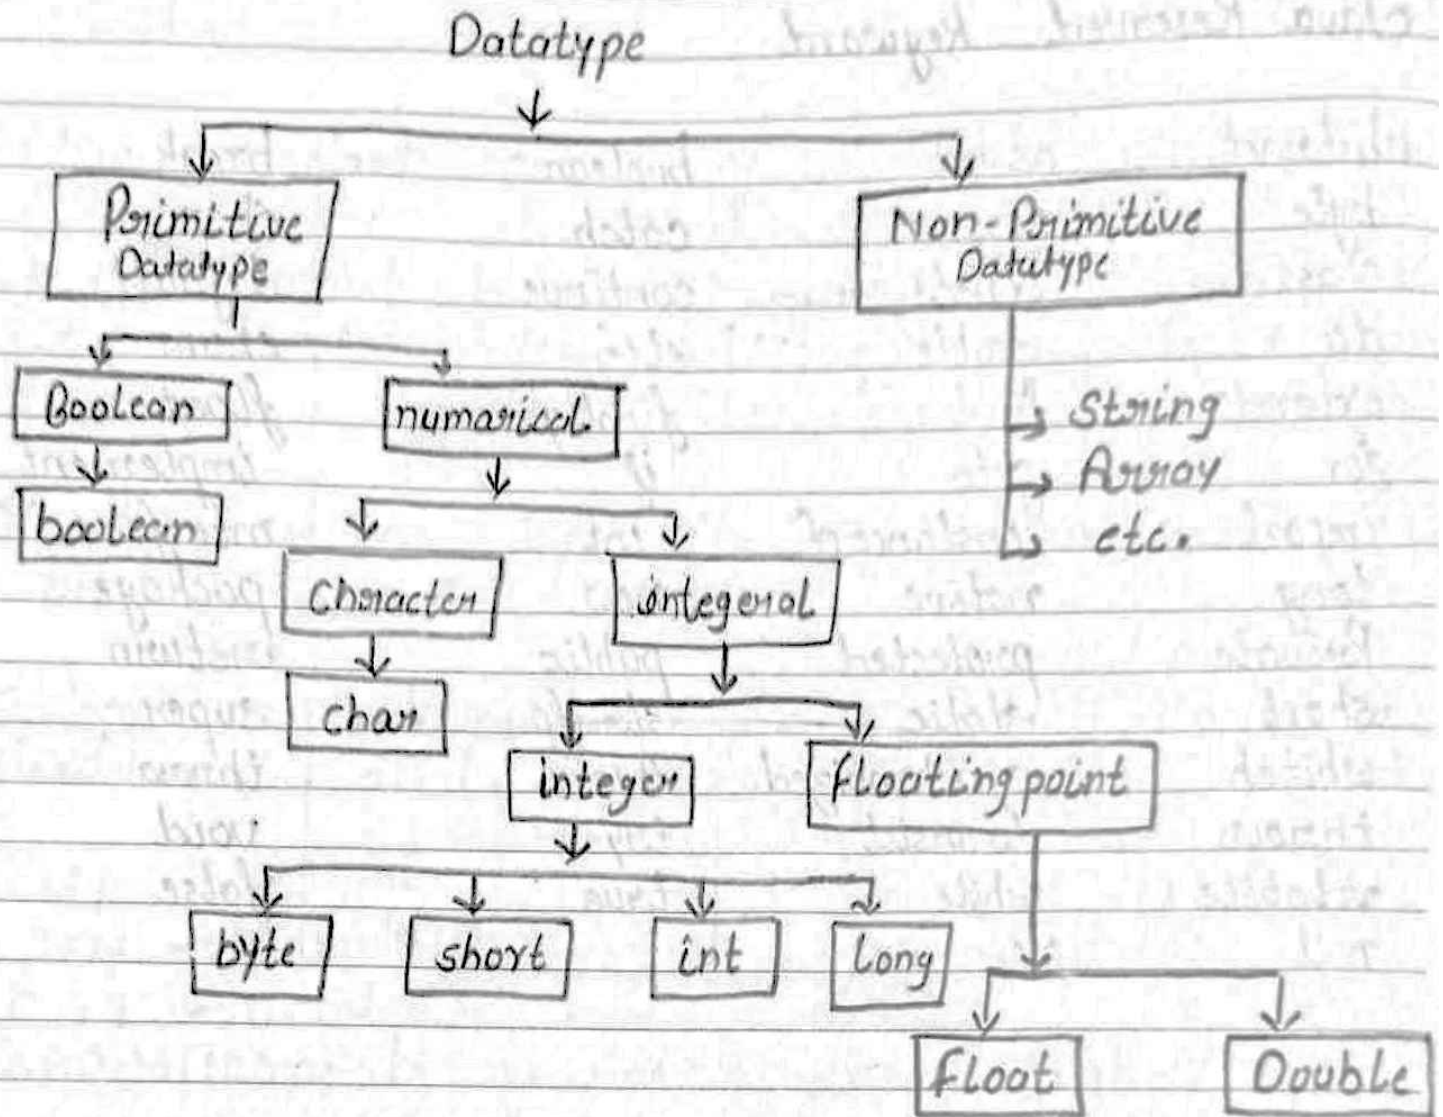 Datatype
Primitive
Datatype
Non-Primitive
Datatype
Boolean
numarical.
String
Array
etc.
boolean
Character
integeral
char
integer
floating point
byte
short
int
long
float
Double